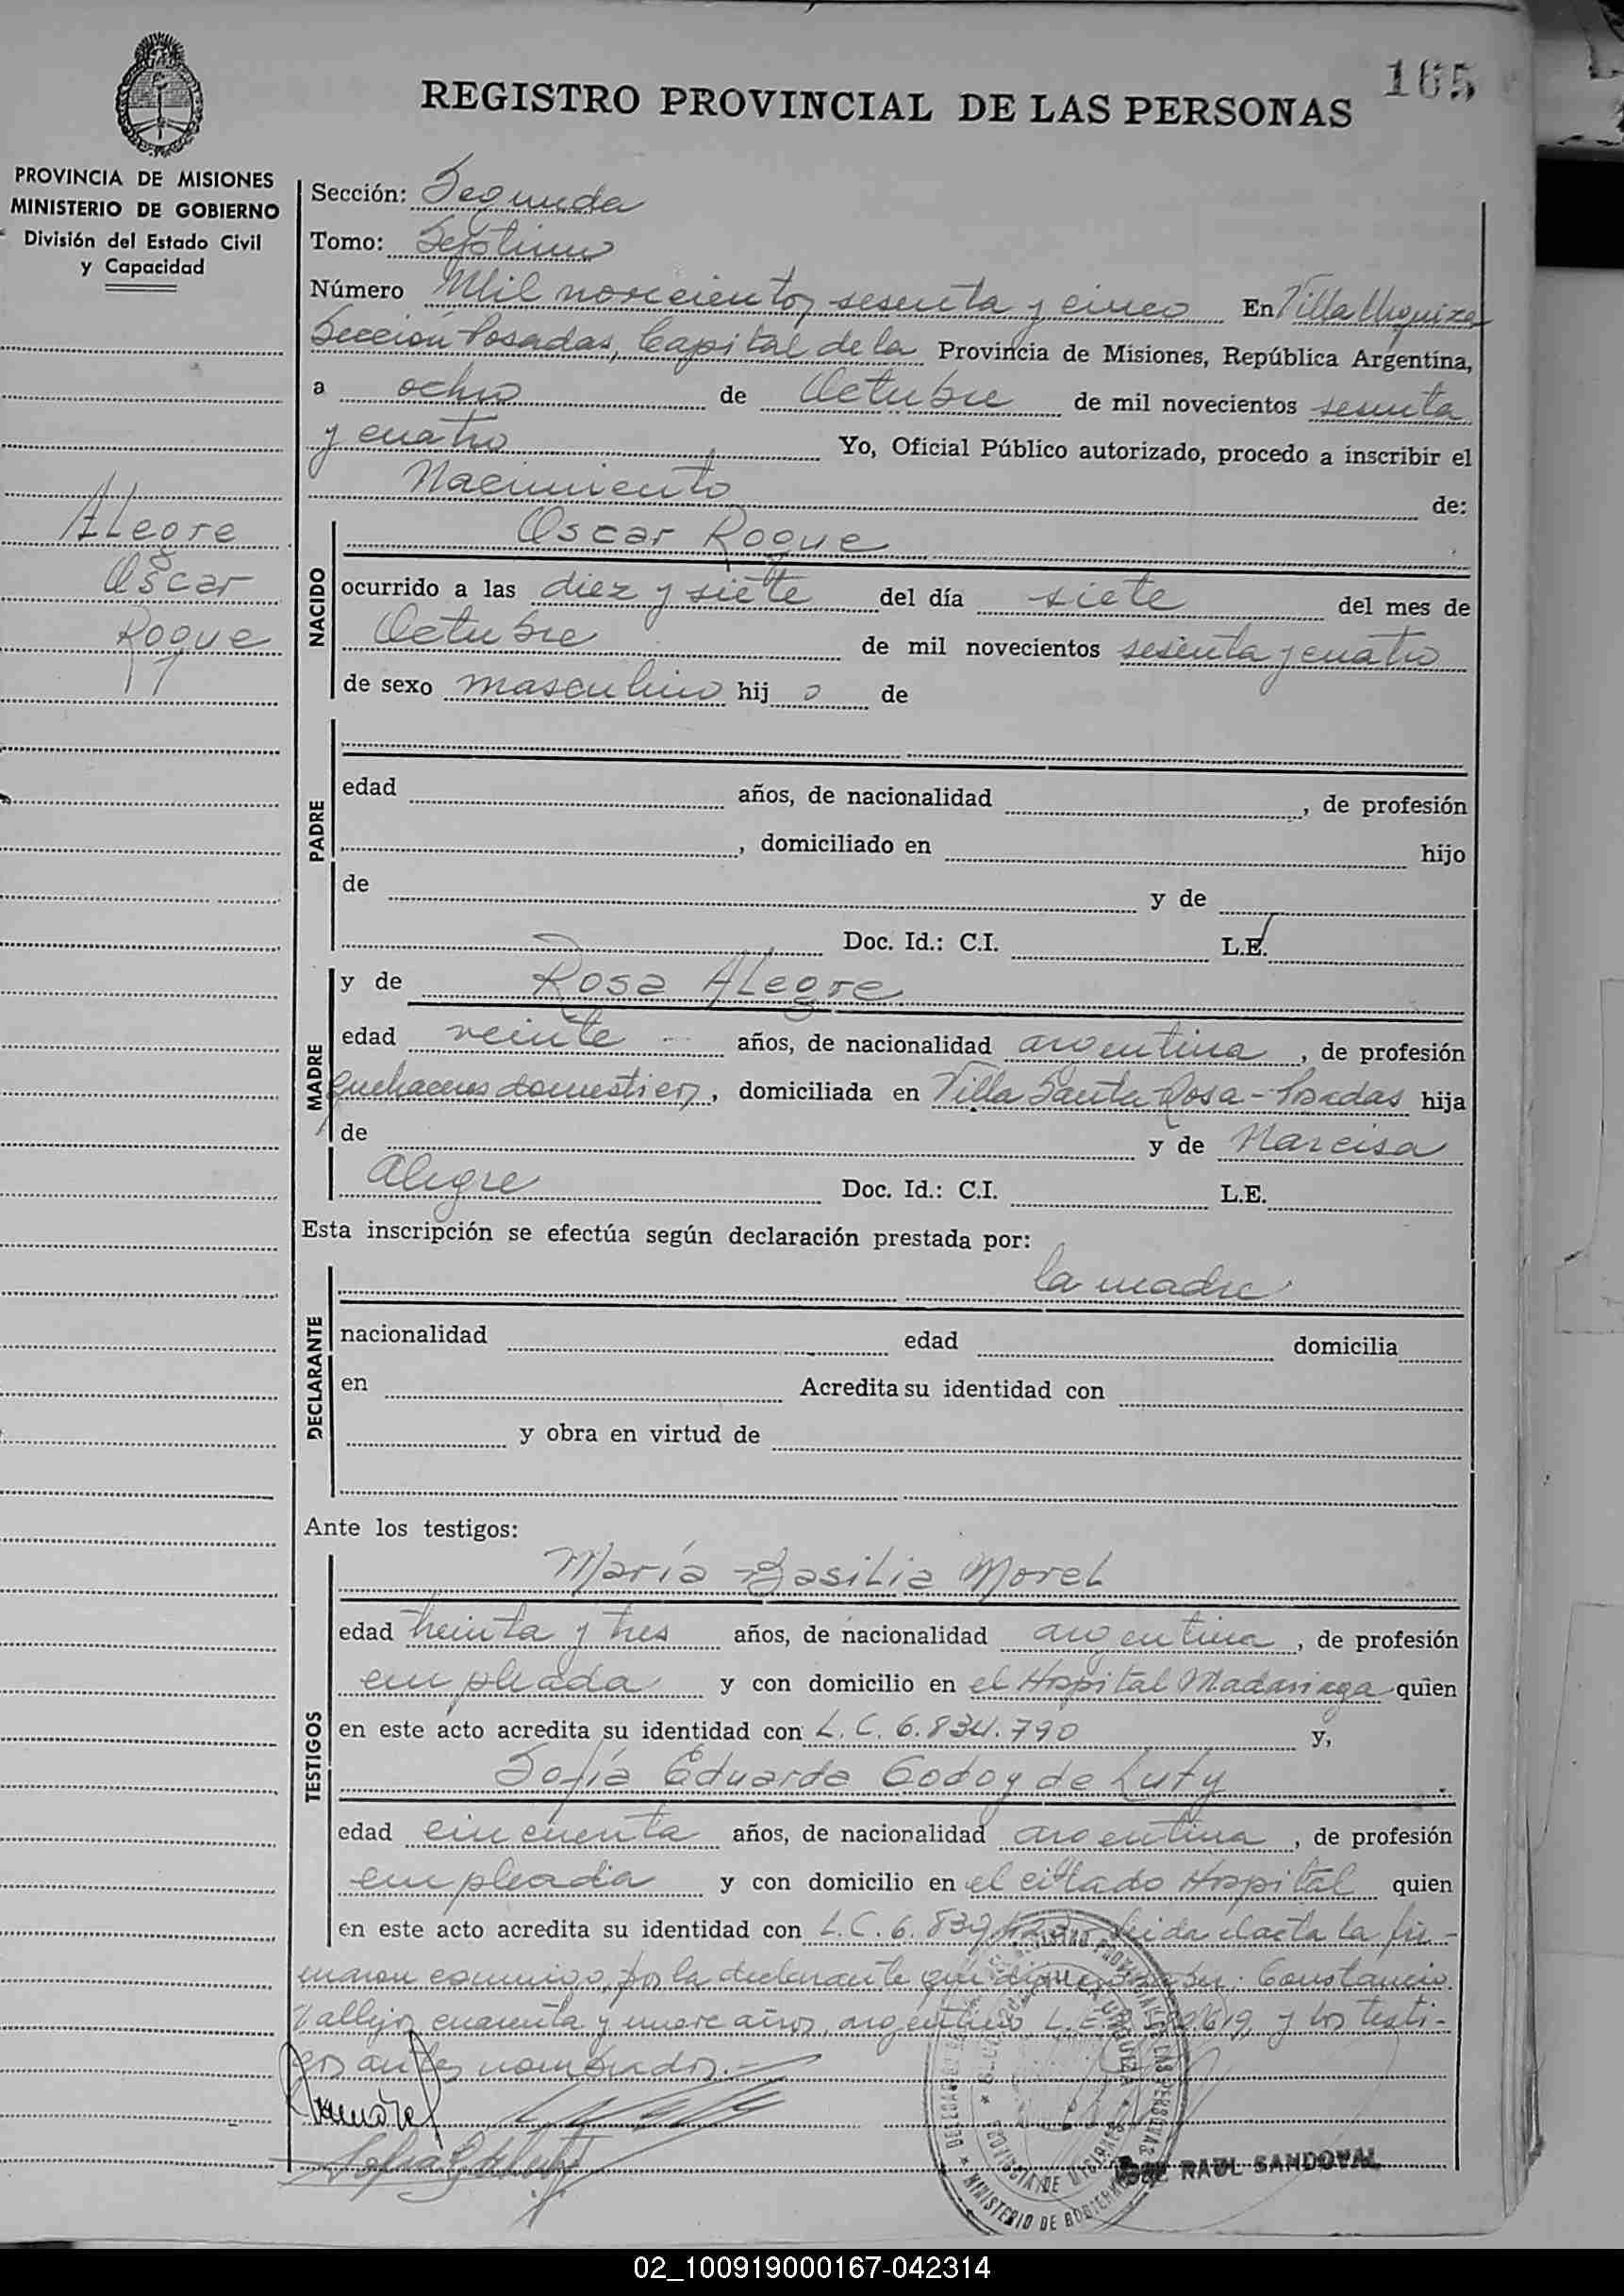 165
REGISTRO PROVINCIAL DE LAS PERSONAS
PROVINCIA DE MISIONES
MINISTERIO DE GOBIERNO
División del Estado Civil
y Capacidad
Alegre
Oscar
Roque
Sección: Segunda
Tomo: Septimo
Número Mil novecientos sesenta y cinco En Villa Urquiza
Sección Posadas, Capital de la Provincia de Misiones, República Argentina,
a ocho de Octubre de mil novecientos sesenta
y cuatro Yo, Oficial Público autorizado, procedo a inscribir el
Nacimiento de:
NACIDO
Oscar Roque
ocurrido a las diez y siete del día siete del mes de
Octubre de mil novecientos sesenta y cuatro
de sexo masculino hij o de
PADRE
edad años, de nacionalidad , de profesión
, domiciliado en hijo
de y de
Doc. Id.: C.I. L.E.
MADRE
y de Rosa Alegre
edad veinte años, de nacionalidad argentina, de profesión
quehaceres domesticos, domiciliada en Villa Santa Rosa - Posadas hija
de y de Narcisa
Alegre Doc. Id.: C.I. L.E.
Esta inscripción se efectúa según declaración prestada por:
DECLARANTE
la madre
nacionalidad edad domicilia
en Acredita su identidad con
y obra en virtud de
Ante los testigos:
TESTIGOS
María Basilia Morel
edad treinta y tres años, de nacionalidad argentina, de profesión
empleada y con domicilio en el Hospital Madariaga quien
en este acto acredita su identidad con L.C. 6.834.790 y,
Sofía Eduarda Godoy de Lufy
edad cincuenta años, de nacionalidad argentina, de profesión
empleada y con domicilio en el citado Hospital quien
en este acto acredita su identidad con L.C. 6. Leida el acta la fir-
maron conmigo, por la declarante que dijo Constancio
Vallejos cuarenta y nueve años, argentino L.E. y los testi-
gos antes nombrados.-
MINISTERIO DE GOBIERNO
JOSE RAUL SANDOVAL
02_100919000167-042314